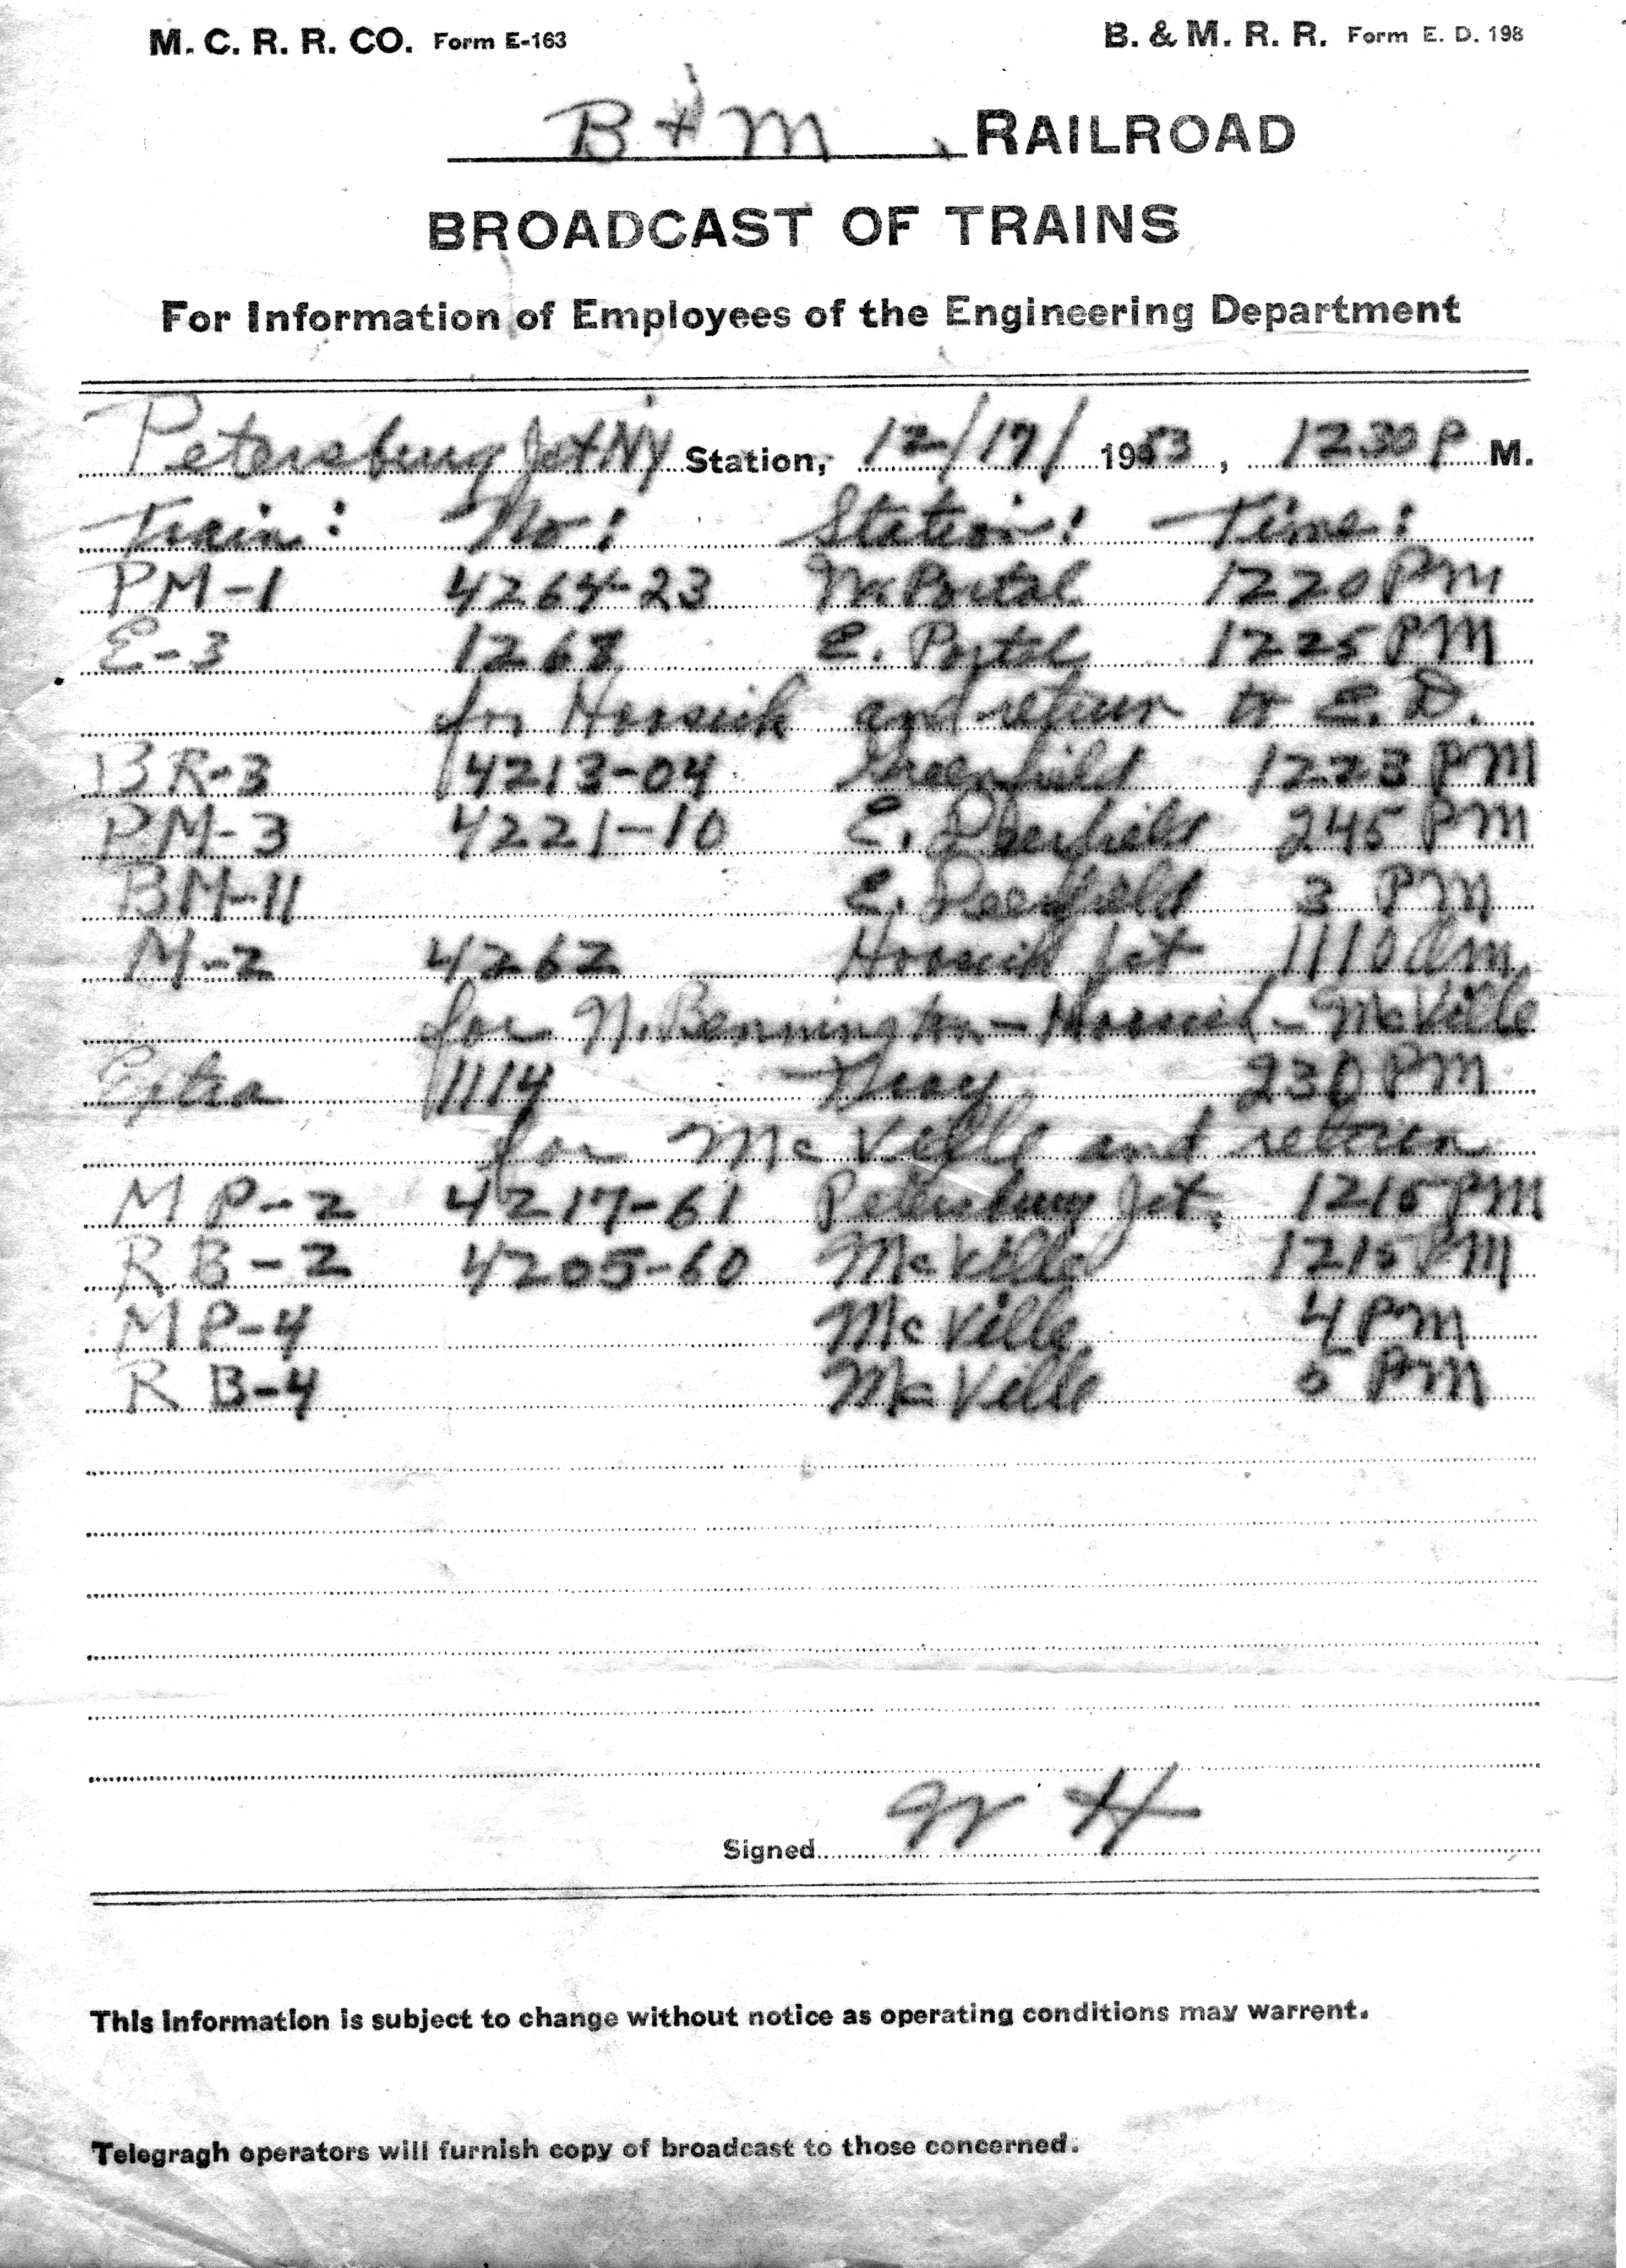 M. C. R. R. CO. Form E-163 B. & M. R. R. Form E. D. 198
B & M RAILROAD
BROADCAST OF TRAINS
For Information of Employees of the Engineering Department
Petersburg Jct NY Station, 12/17/ 1953, 1230 P M.
Train: No: Station: Time:
PM-1 4264-23 W. Portal 1220 PM
E-3 1268 E. Portal 1225 PM
for Hoosick and return to E. D.
BR-3 4213-04 Greenfield 1223 PM
PM-3 4221-10 E. Deerfield 245 PM
BM-11 E. Deerfield 3 PM
M-2 4262 Hoosick Jct 1110 am
for N. Bennington - Hoosick - McVille
Extra 1114 Troy 230 PM
for McVille and return
MP-2 4217-61 Petersburg Jct. 1215 PM
RB-2 4205-60 McVille 1215 PM
MP-4 McVille 4 PM
RB-4 McVille 5 PM
Signed W H
This information is subject to change without notice as operating conditions may warrent.
Telegragh operators will furnish copy of broadcast to those concerned.